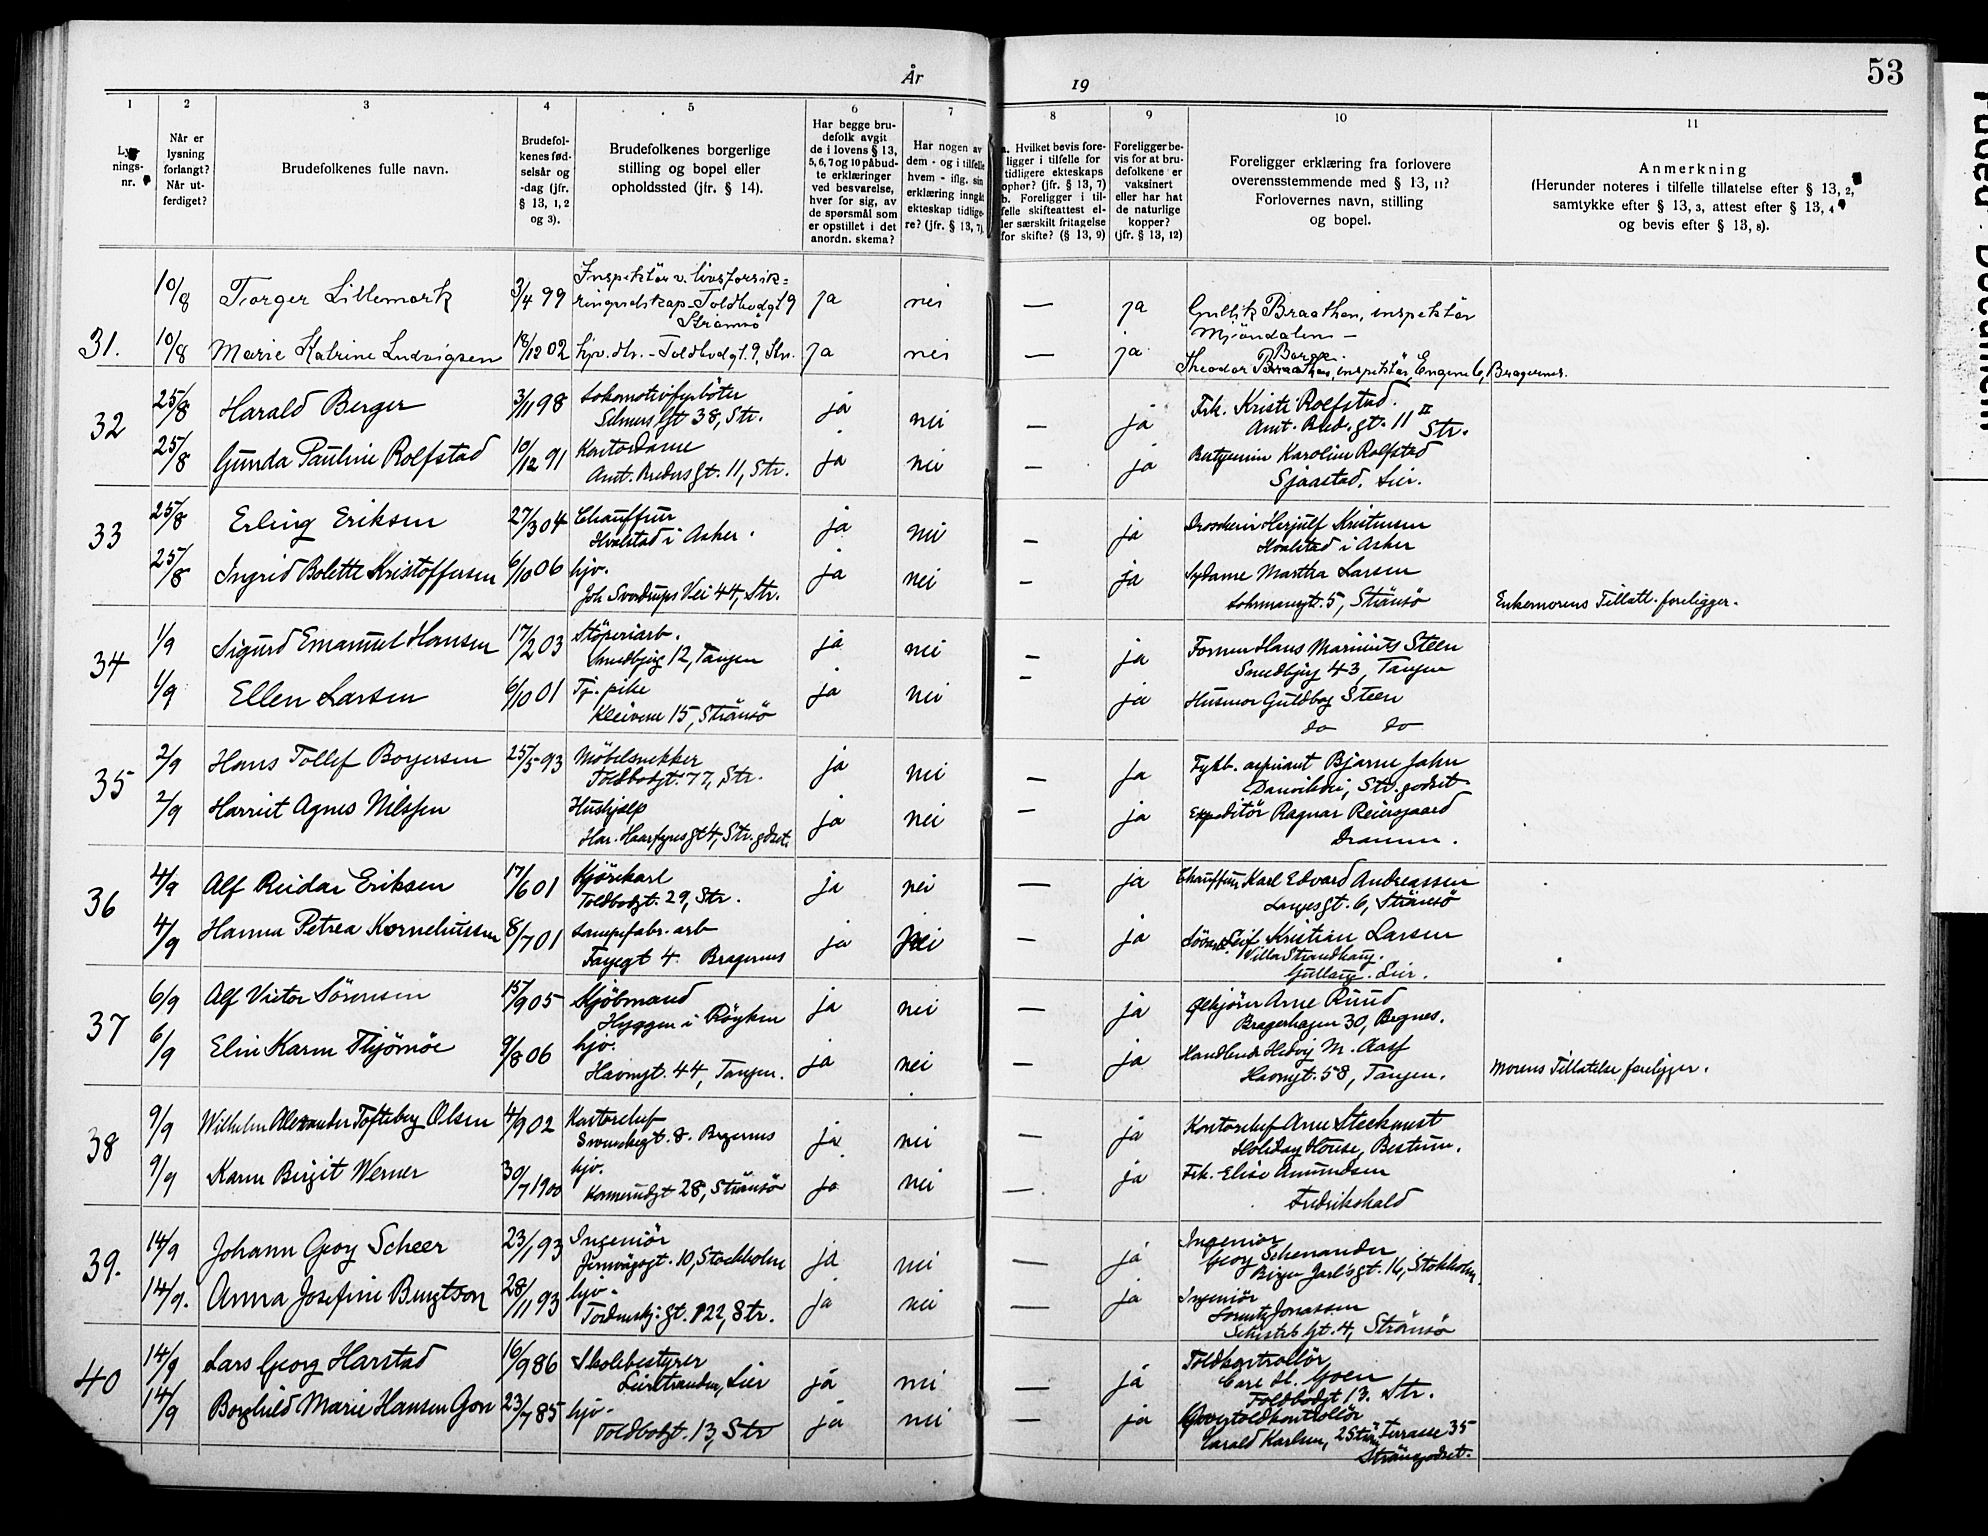 År 19
53
1 2 3 4 5 6 7 8 9 10 11
Lysnings-nr.
Når er lysning forlangt? Når utferdiget?
Brudefolkenes fulle navn.
Brudefolkenes fødselsår og -dag (jfr. § 13, 1, 2 og 3).
Brudefolkenes borgerlige stilling og bopel eller opholdssted (jfr. § 14).
Har begge brudefolk avgit de i lovens § 13, 5, 6, 7 og 10 påbudte erklæringer ved besvarelse, hver for sig, av de spørsmål som er opstillet i det anordn. skema?
Har nogen av dem - og i tilfelle hvem - iflg. sin erklæring inngåt ekteskap tidligere? (jfr. § 13, 7).
a. Hvilket bevis foreligger i tilfelle for tidligere ekteskaps ophør? (jfr. § 13, 7)
b. Foreligger i tilfelle skifteattest eller særskilt fritagelse for skifte? (§ 13, 9)
Foreligger bevis for at brudefolkene er vaksinert eller har hat de naturlige kopper? (jfr. § 13, 12)
Foreligger erklæring fra forlovere overensstemmende med § 13, 11? Forlovernes navn, stilling og bopel.
Anmerkning
(Herunder noteres i tilfelle tillatelse efter § 13, 2, samtykke efter § 13, 3, attest efter § 13, 4 og bevis efter § 13, 8).
31. 10/8 Torger Lillemork 3/4 99 Inspektör v. livsforsik= ringsselskap - Toldbodgt 9 Strömsö ja nei — ja Gullik Braathen, inspektör Mjöndalen –
10/8 Marie Katrine Ludvigsen 18/12 02 hjv. dtr. - Toldbodgt. 9, Str. ja nei — ja Theodor Borge, inspektör, Engene 6, Bragernes.
32 25/8 Harald Berger 3/11 98 Lokomotivfyrböter Selmers Gt 38, Str. ja nei — ja Frk. Kristi Rolfstad. Amt. Bud. gt. 11 II Str.
25/8 Gunda Pauline Rolfstad 10/12 91 Kontordame gt. 11, Str. ja nei — ja Karoline Rolfstad Sjaastad, Lier.
33 25/8 Erling Eriksen 27/3 04 Chauffeur Hvalstad i Asker. ja nei — ja Herjulf Kristensen Hvalstad i Asker
25/8 Ingrid Bolette Kristoffersen 6/10 06 hjv. Joh Sverdrups Vei 44, Str. ja nei — ja Sydame Martha Larsen 5, Strömsö Enkemorens Tillatt. foreligger.
34 1/9 Sigurd Emanuel Hansen 17/2 03 Stöperiarb. Smedbjerg 12, Tangen ja nei — ja Hans Marinius Steen Smedbjerg 43, Tangen
1/9 Ellen Larsen 6/10 01 Tj. pike Kleivene 15, Strömsö ja nei – ja Husmor Guldborg Steen do do
35 2/9 Hans Tollef Boyersen 25/5 93 Möbelsnekker Toldbodgt. 77, Str. ja nei — ja aspirant Bjarne Jahn Str. godset
2/9 Harriet Agnes Nilssen Hushjælp Har. Haarfagres gt 4, Str. godset. ja nei — ja Expeditör Ragnar Reiersgaard Drammen.
36 4/9 Alf Reidar Eriksen 17/6 01 Kjörekarl Toldbodgt. 29, Str. ja nei — ja Chauffeur Karl Edvard Andreassen Langes gt. 6, Strömsö
4/9 Hanna Petrea Korneliussen 8/7 01 Lampefabr. arb Fayegt 4. Bragernes ja nei — ja Leif Kristian Larsen Villa Strandhaug. Gullaug. Lier.
37 6/9 Alf Victor Sörensen 15/9 05 Kjöbmand Hyggen i Röyken ja nei — ja Arne Ruud Bragerhagen 30, Bragnes.
6/9 Elin Karin Thjömöe 9/8 06 hjv. Havnegt. 44, Tangen. ja nei — ja Hedvig M. Aass Havnegt. 58, Tangen. Morens Tillatelse foreligger.
38 9/9 Wilhelm Alexander Tofteberg Olsen 4/9 02 Kontorchef gt. 8. Bragernes ja nei — ja Kontorchef Arne Steckmest Holiday House, Bestum.
9/9 Karin Birgit Werner 30/7 1900 hjv. Konnerudgt 28, Strömsö ja nei — ja Frk. Elise Amundsen Fredrikshald
39. 14/9 Johann Georg Scheer 23/1 93 Ingeniör Jernvägsgt. 10, Stockholm ja nei — ja Ingeniör Georg Schenander Birger Jarls gt. 16, Stokholm.
14/9. Anna Josefine Bengtson 28/11 93 hjv. Tordenskj. gt. 122, Str. ja nei — ja Ingeniör Lorentz Jonassen gt. 4, Strömsö
40 14/9 Lars Georg Harstad 16/9 86 Skolebestyrer Lierstranden, Lier ja nei — ja Toldkontrollör Carl H. Goen Toldbodgt 13. Str.
14/9 Borghild Marie Hansen Gon 23/7 85 hjv. Toldbodgt. 13, Str ja nei — ja Overtoldkontrollör Harald Karlsen, 2 Ström Terrasse 35 Strömsgodset.